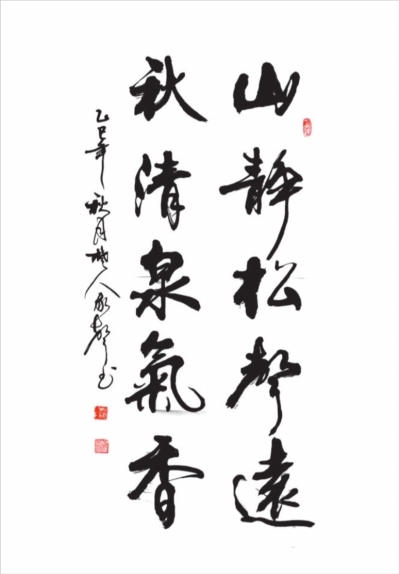 山靜松聲遠
秋清泉氣香
乙巳年秋月 人家聲書